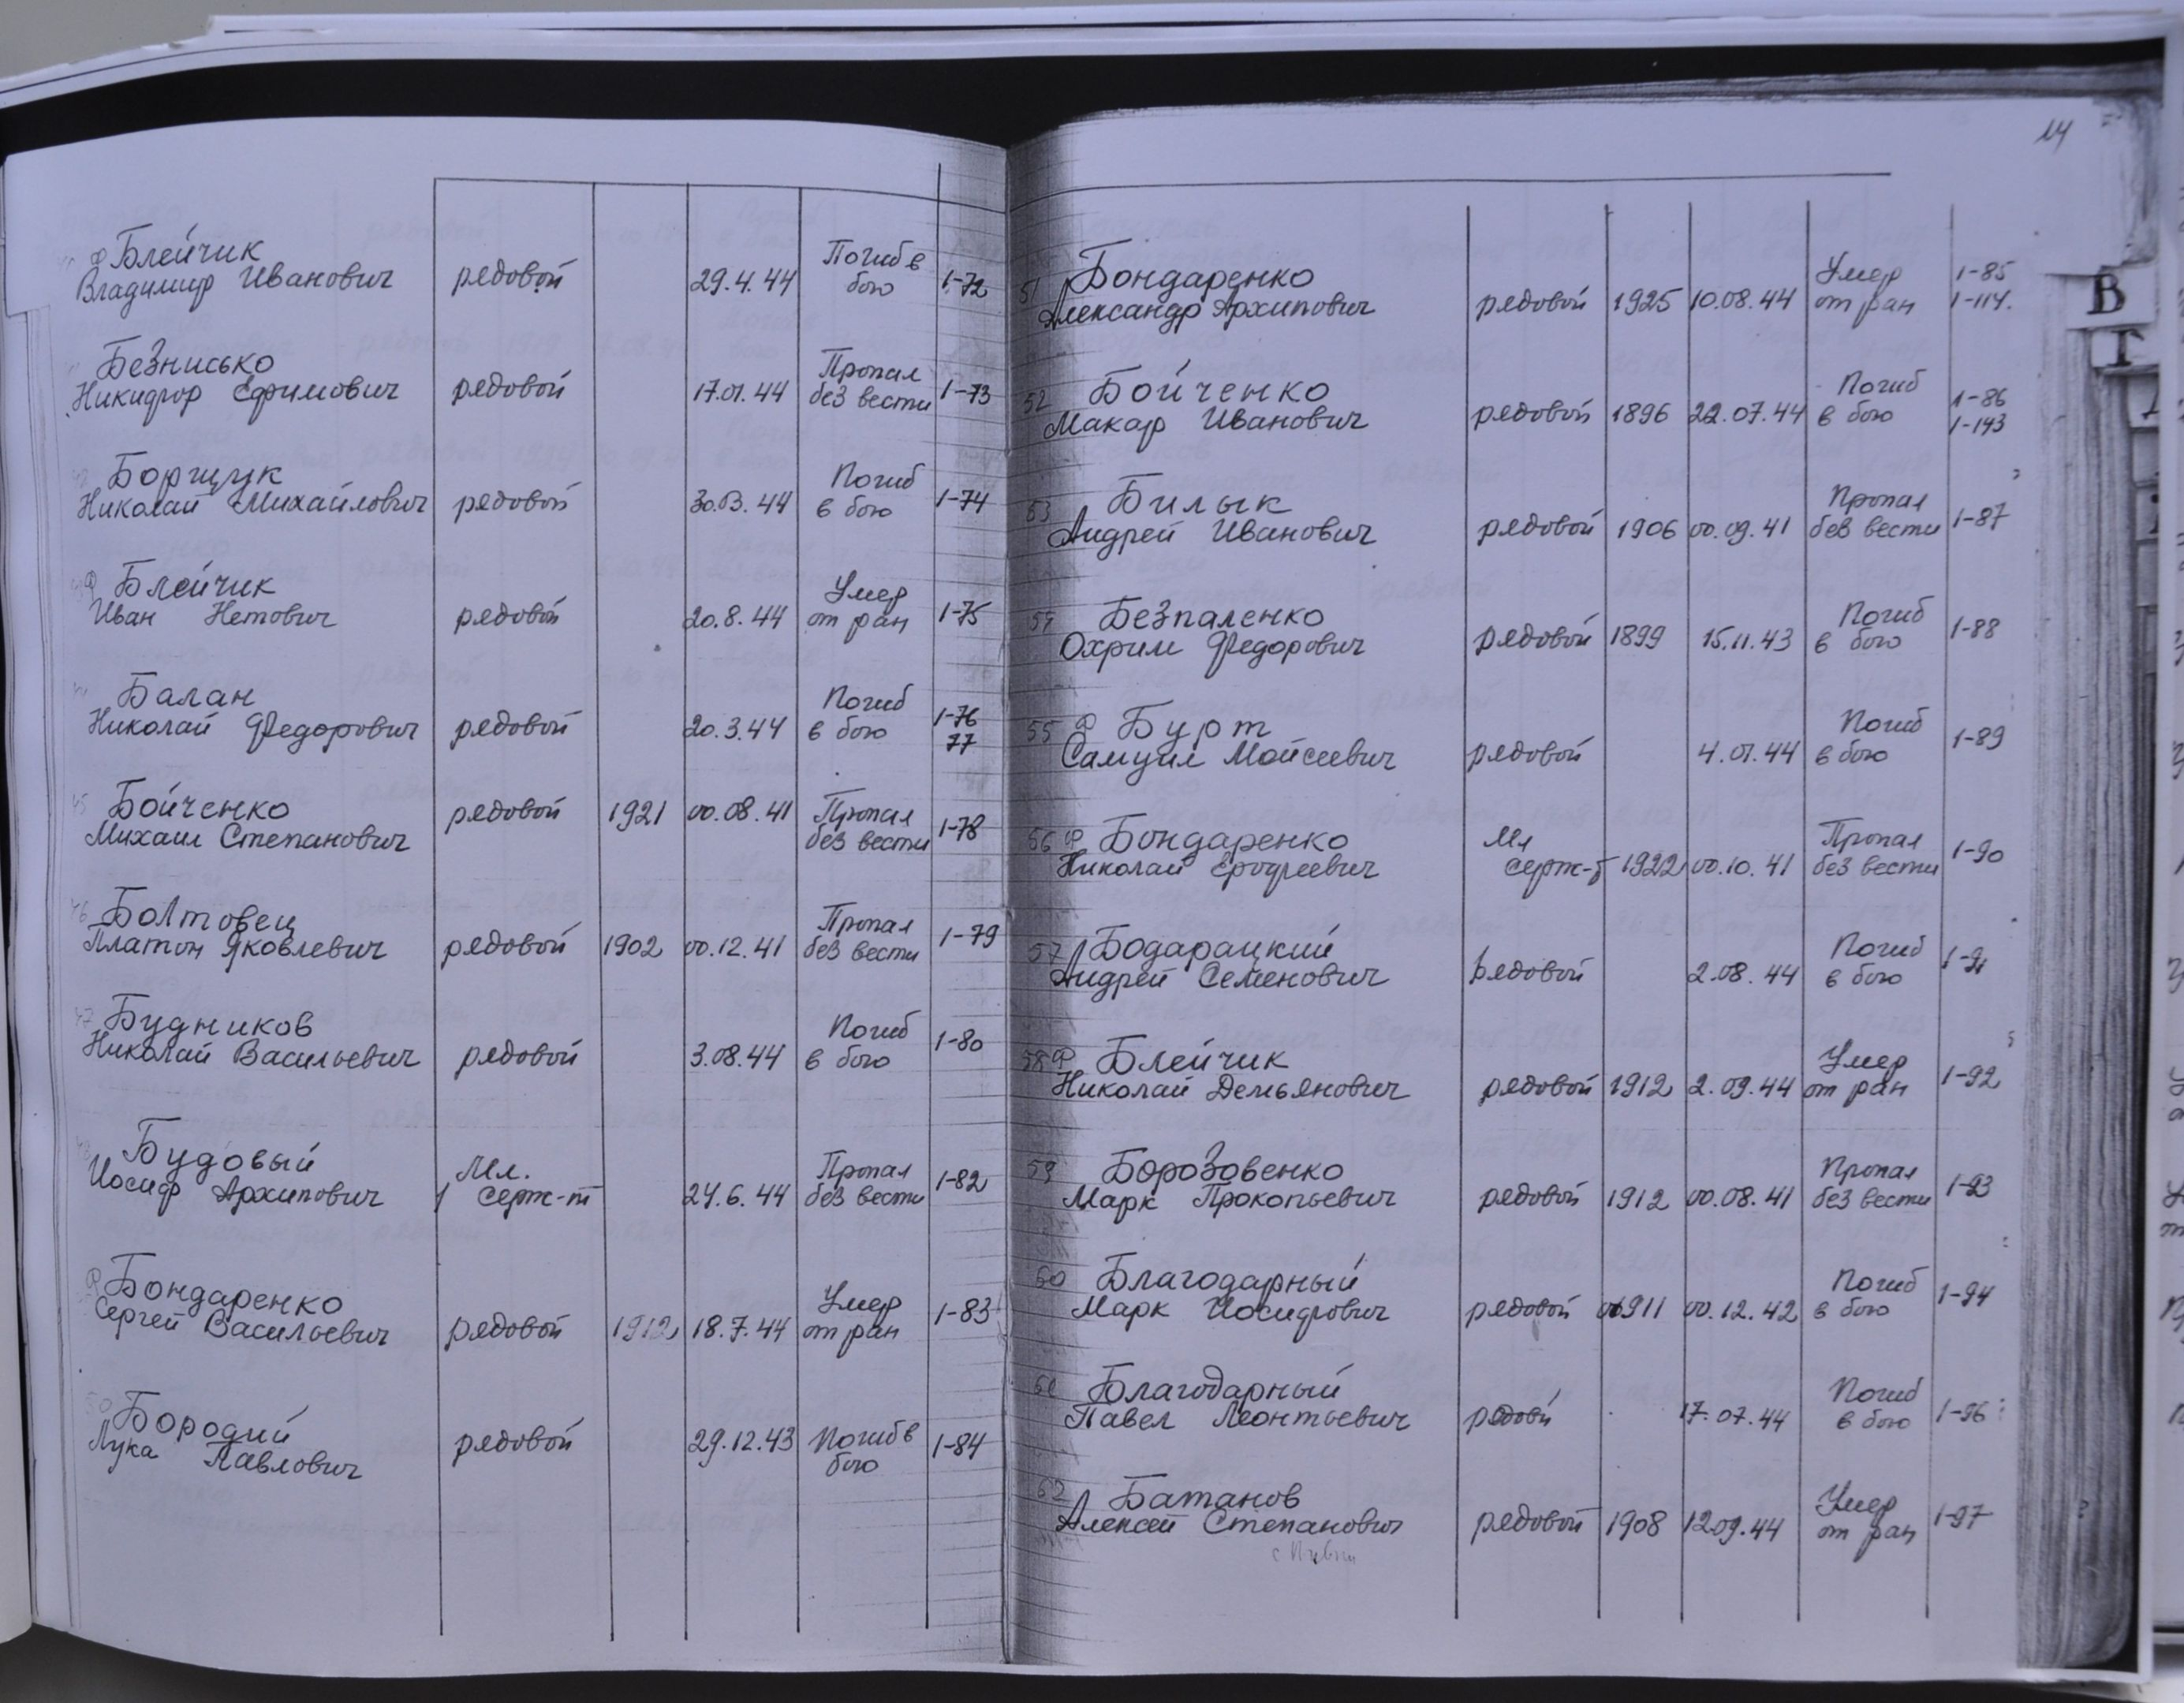 Блейчик
Владимир Иванович рядовой 29.4.44 Погиб в бою 1-72
Безнисько
Никифор Ефимович рядовой 17.01.44 Пропал без вести 1-73
Борщук
Николай Михайлович рядовой 30.03.44 Погиб в бою 1-74
Блейчик
Иван Нетович рядовой 20.8.44 Умер от ран 1-75
Балан
Николай Федорович рядовой 20.3.44 Погиб в бою 1-76 77
45 Бойченко
Михаил Степанович рядовой 1921 00.08.41 Пропал без вести 1-78
46 Болтовец
Платон Яковлевич рядовой 1902 00.12.41 Пропал без вести 1-79
47 Будников
Николай Васильевич рядовой 3.08.44 Погиб в бою 1-80
Будовый
Иосиф Архипович Мл. серж-т 24.6.44 Пропал без вести 1-82
Ф Бондаренко
Сергей Васильевич рядовой 1912 18.7.44 Умер от ран 1-83
50 Бородий
Лука Павлович рядовой 29.12.43 Погиб в бою 1-84
14
51 Бондаренко
Александр Архипович рядовой 1925 10.08.44 Умер от ран 1-85 1-114.
52 Бойченко
Макар Иванович рядовой 1896 22.07.44 Погиб в бою 1-86 1-143
53 Билык
Андрей Иванович рядовой 1906 00.09.41 Пропал без вести 1-87
54 Безпаленко
Охрим Федорович рядовой 1899 15.11.43 Погиб в бою 1-88
55 Ф Бурт
Самуил Мойсеевич рядовой 4.01.44 Погиб в бою 1-89
56 Ф Бондаренко
Николай Ерофеевич Мл серж-т 1922 00.10.41 Пропал без вести 1-90
57 Бодарацкий
Андрей Семенович рядовой 2.08.44 Погиб в бою 1-91
58 Ф Блейчик
Николай Демьянович рядовой 1912 2.09.44 Умер от ран 1-92
59 Борозовенко
Марк Прокопьевич рядовой 1912 00.08.41 Пропал без вести 1-93
60 Благодарный
Марк Иосифович рядовой 1911 00.12.42 Погиб в бою 1-94
61 Благодарный
Павел Леонтьевич рядовой 17.07.44 Погиб в бою 1-96
62 Батанов
Алексей Степанович рядовой 1908 12.09.44 Умер от ран 1-97
В
Г